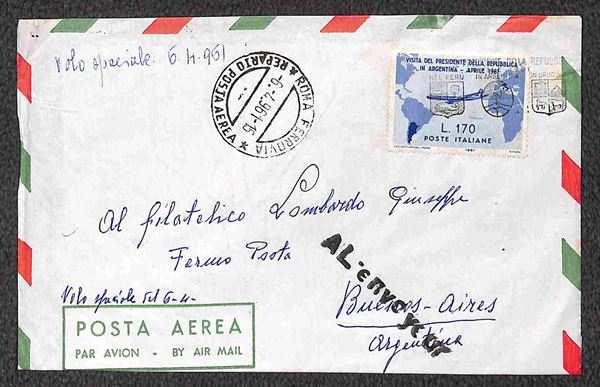 Volo speciale 6.4.961
ROMA FERROVIA
* REPARTO POSTA AEREA *
VISITA DEL PRESIDENTE DELLA REPUBBLICA
IN ARGENTINA - APRILE 1961
DELLA REPUBBL
NEL PERÙ IN ARGENTINA IN URUGUAY
L. 170
POSTE ITALIANE
1961
Al filatelico Lombardo Giuseppe
Fermo Posta
Volo speciale del 6-4-
AL-envoyeur
Buenos-Aires
Argentina
POSTA AEREA
PAR AVION - BY AIR MAIL